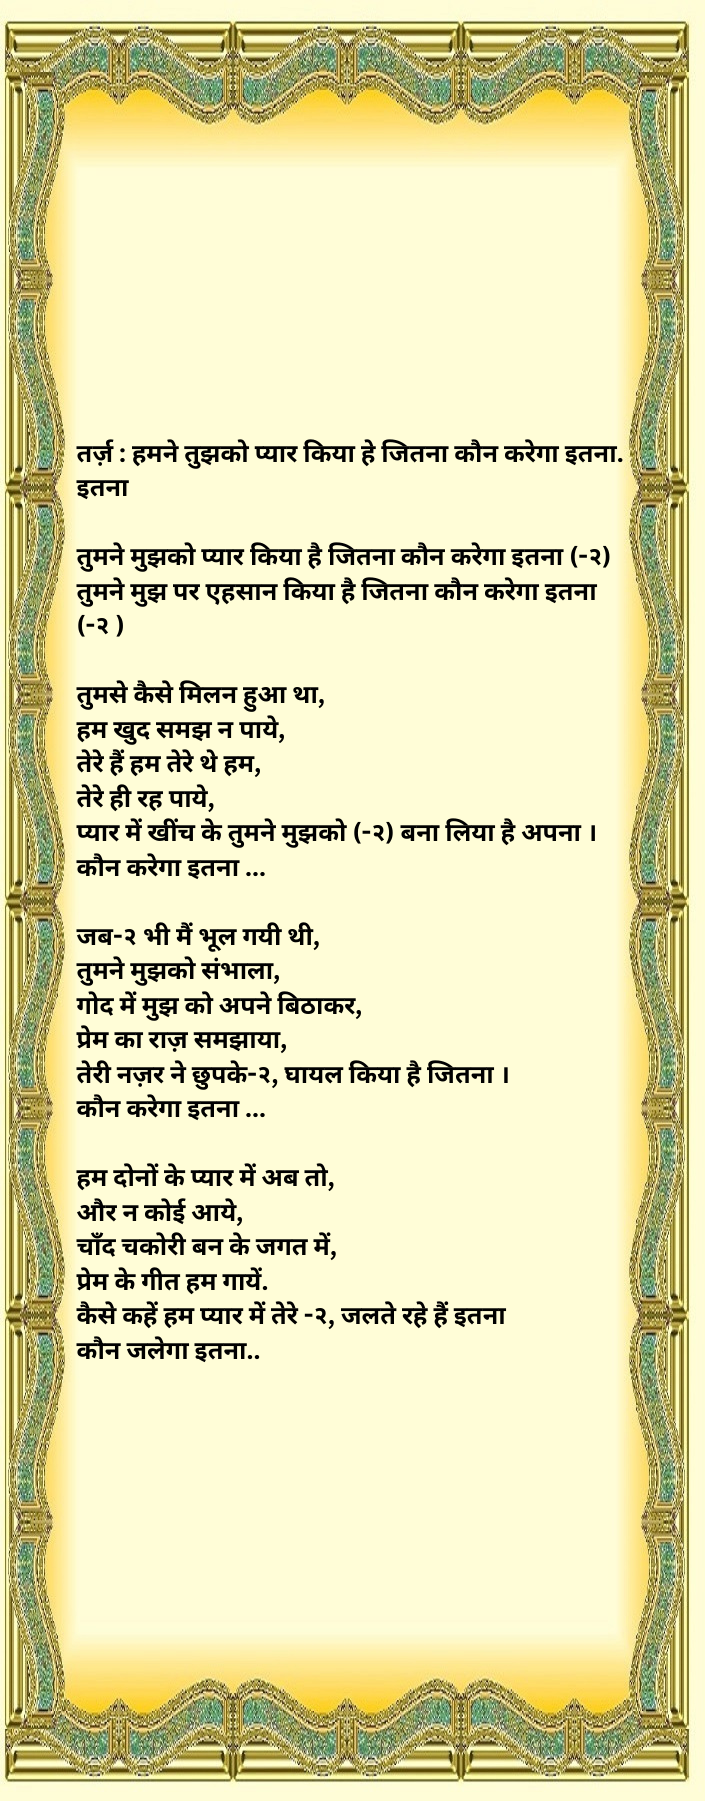 तर्ज़ : हमने तुझको प्यार किया हे जितना कौन करेगा इतना.
इतना
तुमने मुझको प्यार किया है जितना कौन करेगा इतना (-२)
तुमने मुझ पर एहसान किया है जितना कौन करेगा इतना
(-२ )
तुमसे कैसे मिलन हुआ था,
हम खुद समझ न पाये,
तेरे हैं हम तेरे थे हम,
तेरे ही रह पाये,
प्यार में खींच के तुमने मुझको (-२) बना लिया है अपना ।
कौन करेगा इतना ...
जब-२ भी मैं भूल गयी थी,
तुमने मुझको संभाला,
गोद में मुझ को अपने बिठाकर,
प्रेम का राज़ समझाया,
तेरी नज़र ने छुपके-२, घायल किया है जितना ।
कौन करेगा इतना ...
हम दोनों के प्यार में अब तो,
और न कोई आये,
चाँद चकोरी बन के जगत में,
प्रेम के गीत हम गायें.
कैसे कहें हम प्यार में तेरे -२, जलते रहे हैं इतना
कौन जलेगा इतना..